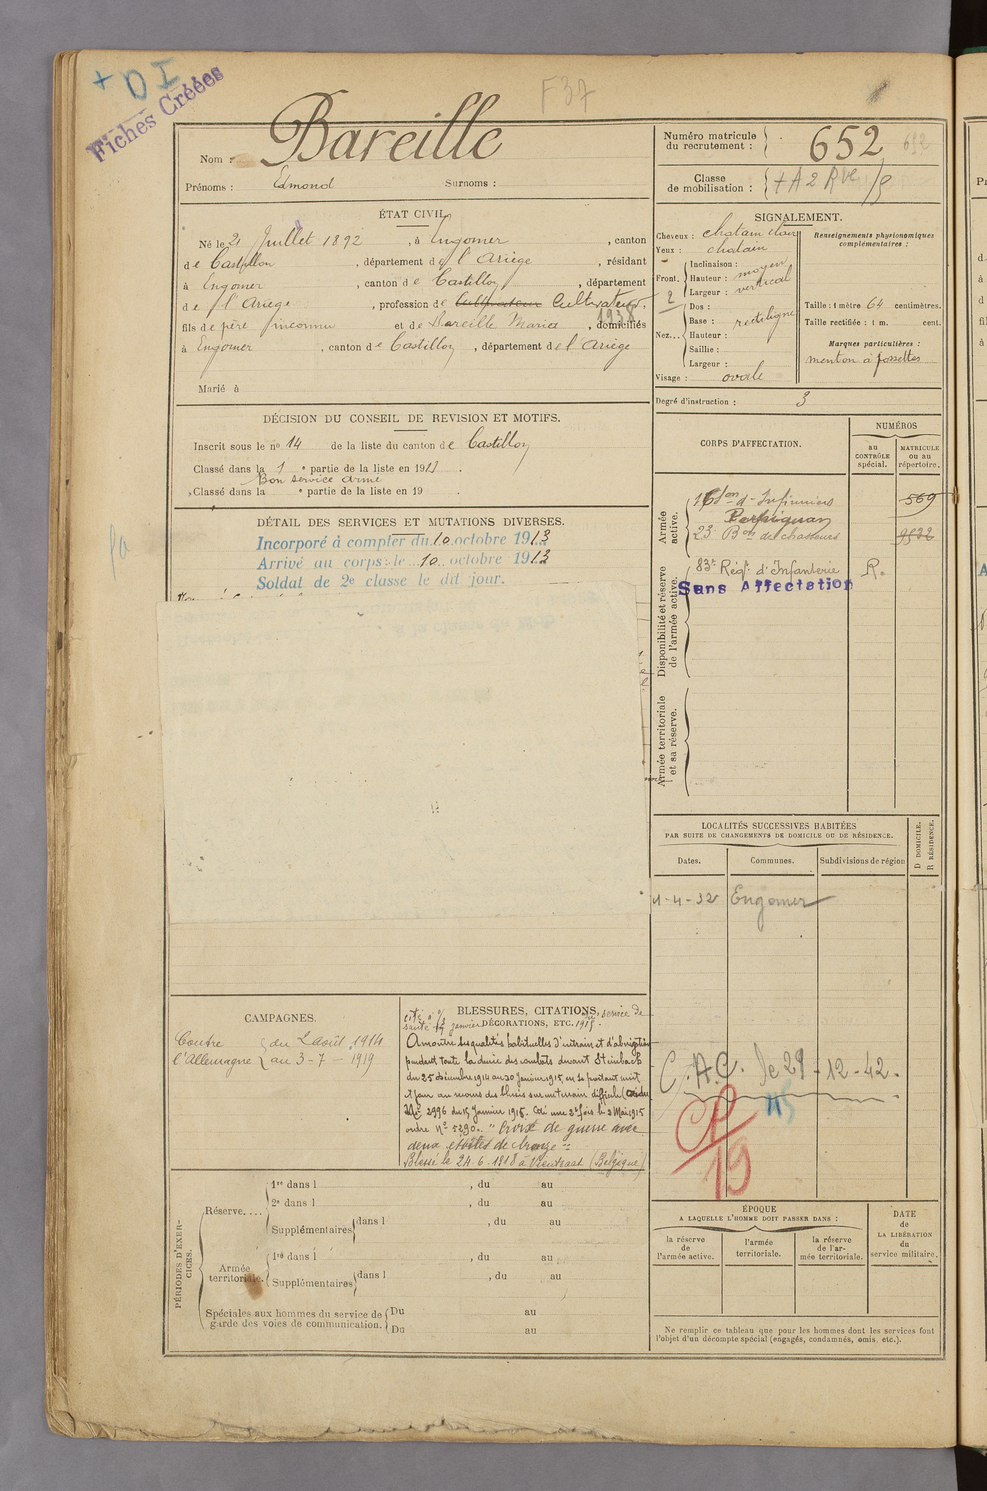 + DI
Fiches Créées
F37
Nom : Bareille
Prénoms : Edmond Surnoms :
Numéro matricule du recrutement : 652 652
Classe de mobilisation :
ÉTAT CIVIL
Né le 21 Juillet 1892, à Engomer, canton
de Castillon, département de l'Ariège, résidant
à Engomer, canton de Castillon, département
de l'Ariège, profession de Cultivateur Cultivateur,
1938
fils de père inconnu et de Bareille Maria, domiciliés
à Engomer, canton de Castillon, département de l'Ariège
Marié à
SIGNALEMENT.
Cheveux : chatain clair
Yeux : chatain
Front. Inclinaison :
Hauteur : moyen
Largeur : vertical
2
Nez... Dos :
Base : rectiligne
Hauteur :
Saillie :
Largeur :
Visage : ovale
Renseignements physionomiques complémentaires :
Taille : 1 mètre 64 centimètres.
Taille rectifiée : 1 m. cent.
Marques particulières :
menton à fossettes
Degré d'instruction : 3
DÉCISION DU CONSEIL DE REVISION ET MOTIFS.
Inscrit sous le no 14 de la liste du canton de Castillon
Classé dans la 1 e partie de la liste en 191
Bon service armé
Classé dans la e partie de la liste en 19 .
DÉTAIL DES SERVICES ET MUTATIONS DIVERSES.
Incorporé à compter du 10 octobre 1913
Arrivé au corps : le 10 octobre 1913
Soldat de 2e classe le dit jour.
CORPS D'AFFECTATION.
NUMÉROS
au CONTRÔLE spécial.
MATRICULE ou au répertoire.
Armée active.
d'Infirmiers 569
Perpignan
23e Bon de chasseurs
Disponibilité et réserve de l'armée active.
83e Régt d'Infanterie R.
Sans Affectation
Armée territoriale et sa réserve.
LOCALITÉS SUCCESSIVES HABITÉES
PAR SUITE DE CHANGEMENTS DE DOMICILE OU DE RÉSIDENCE.
Dates. Communes. Subdivisions de région
D DOMICILE.
R RÉSIDENCE.
4-32 Engomer
C.A.C. le 29-12-42.
CAMPAGNES.
Contre l'Allemagne du 2 août 1914
au 3-7-1919
BLESSURES, CITATIONS,
DÉCORATIONS, ETC.
service de
santé janvier 1915.
A montré des qualités habituelles d'entrain et d'abnégation
pendant toute la durée des combats devant Steinbach
du 25 décembre 1914 au 30 Janvier 1915, en se portant nuit
et jour au secours des blessés sur un terrain difficile
2996 du 15 Janvier 1915. Cité une 2e fois le 2 Mai 1915
ordre No 5290. "Croix de guerre avec
deux étoiles de bronze"
Blessé le 24.6.1918 à (Belgique)
PÉRIODES D'EXERCICES.
Réserve.... 1re dans l , du au
2e dans l , du au
Supplémentaires dans l , du au
Armée territoriale. 1re dans l , du au
Supplémentaires dans l , du au
Spéciales aux hommes du service de garde des voies de communication. Du au
Du au
ÉPOQUE
A LAQUELLE L'HOMME DOIT PASSER DANS :
la réserve de l'armée active.
l'armée territoriale.
la réserve de l'armée territoriale.
DATE de LA LIBÉRATION du service militaire.
Ne remplir ce tableau que pour les hommes dont les services font
l'objet d'un décompte spécial (engagés, condamnés, omis, etc.).